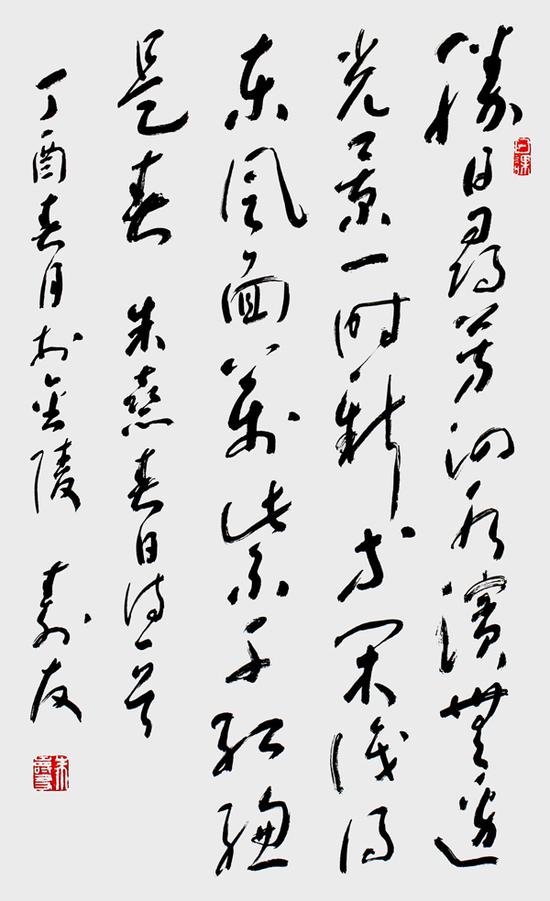 勝日尋芳泗水濱無邊
光景一時新等閑識得
東風面萬紫千紅總
是春 朱熹春日詩一首
丁酉春月於金陵 壽友
朱壽友